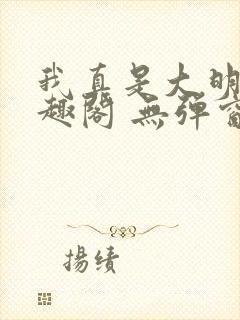 我真是大明
趣阁 無弹窗
揚績